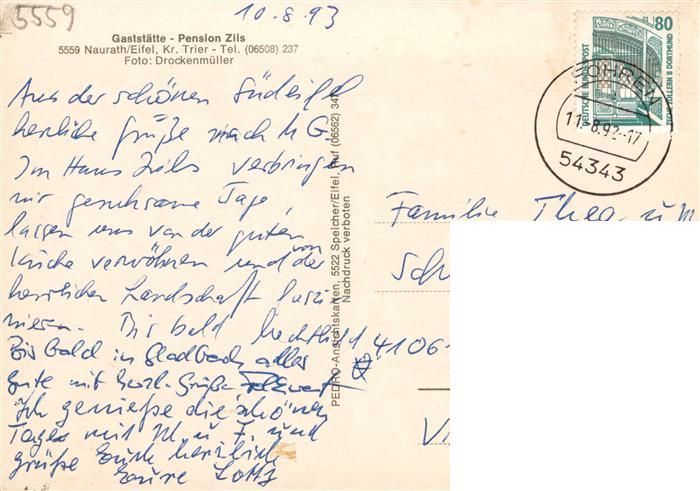 5559
10.8.93
Gaststätte - Pension Zils
5559 Naurath/Eifel, Kr. Trier - Tel. (06508) 237
Foto: Drockenmüller
Aus der schönen Südeifel
herzliche Grüße nach M G.
Im Haus Zils verbringen
wir geruhsame Tage,
lassen uns von der guten
Küche verwöhnen und von der
herrlichen Landschaft faszi
nieren. Bis bald
Bis bald in Gladbach alles
Gute mit herzl. Grüße
Ich genieße die schönen
Tage mit M. u F. und
grüße Euch herzlich
Eure
PEDRO-Ansichtskarten, 5522 Speicher/Eifel, Ruf (06562) 347
Nachdruck verboten
80
DEUTSCHE BUNDESPOST
ZECHE ZOLLERN II DORTMUND
FÖHREN
54343
Familie Thea u
Sch
41061